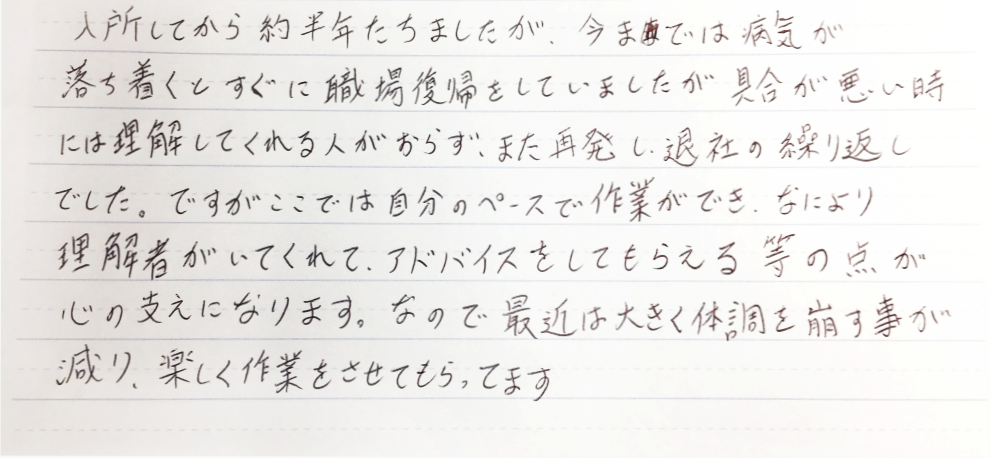 入所してから約半年たちましたが、今までは病気が
落ち着くとすぐに職場復帰をしていましたが具合が悪い時
には理解してくれる人がおらず、また再発し、退社の繰り返し
でした。ですがここでは自分のペースで作業ができ、なにより
理解者がいてくれて、アドバイスをしてもらえる等の点が
心の支えになります。なので最近は大きく体調を崩す事が
減り、楽しく作業をさせてもらってます